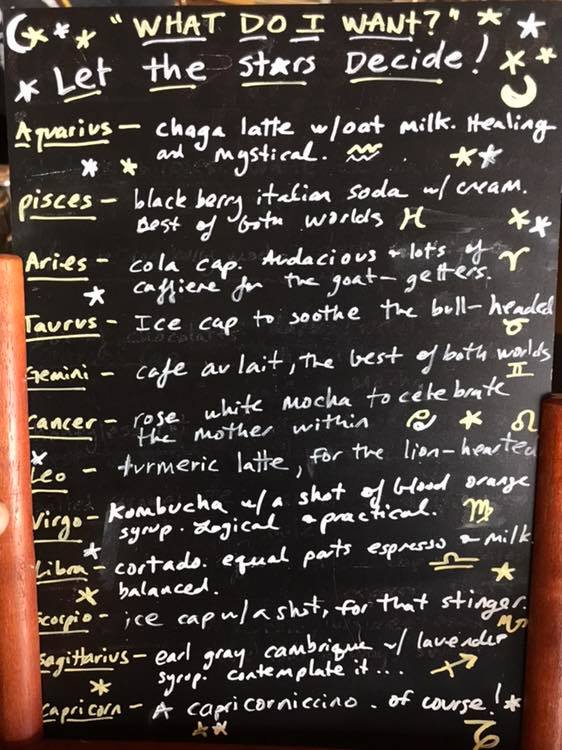 "WHAT DO I WANT?"
Let the stars Decide!
Aquarius — chaga latte w/oat milk. Healing
and mystical.
pisces — black berry italian soda w/ cream.
Best of both worlds
Aries — cola cap. Audacious + lots of
caffiene for the goat-getters.
Taurus — Ice cap to soothe the bull-headed
Gemini — cafe au lait, the best of both worlds
Cancer — rose white mocha to celebrate
the mother within
Leo — turmeric latte, for the lion-hearted
Virgo — Kombucha w/a shot of blood orange
syrup. Logical + practical.
Libra — cortado. equal parts espresso + milk.
balanced.
Scorpio — ice cap w/a shot, for that stinger.
Sagittarius — earl gray cambrique w/ lavender
syrup. contemplate it...
Capricorn — A capricorniccino. of course!